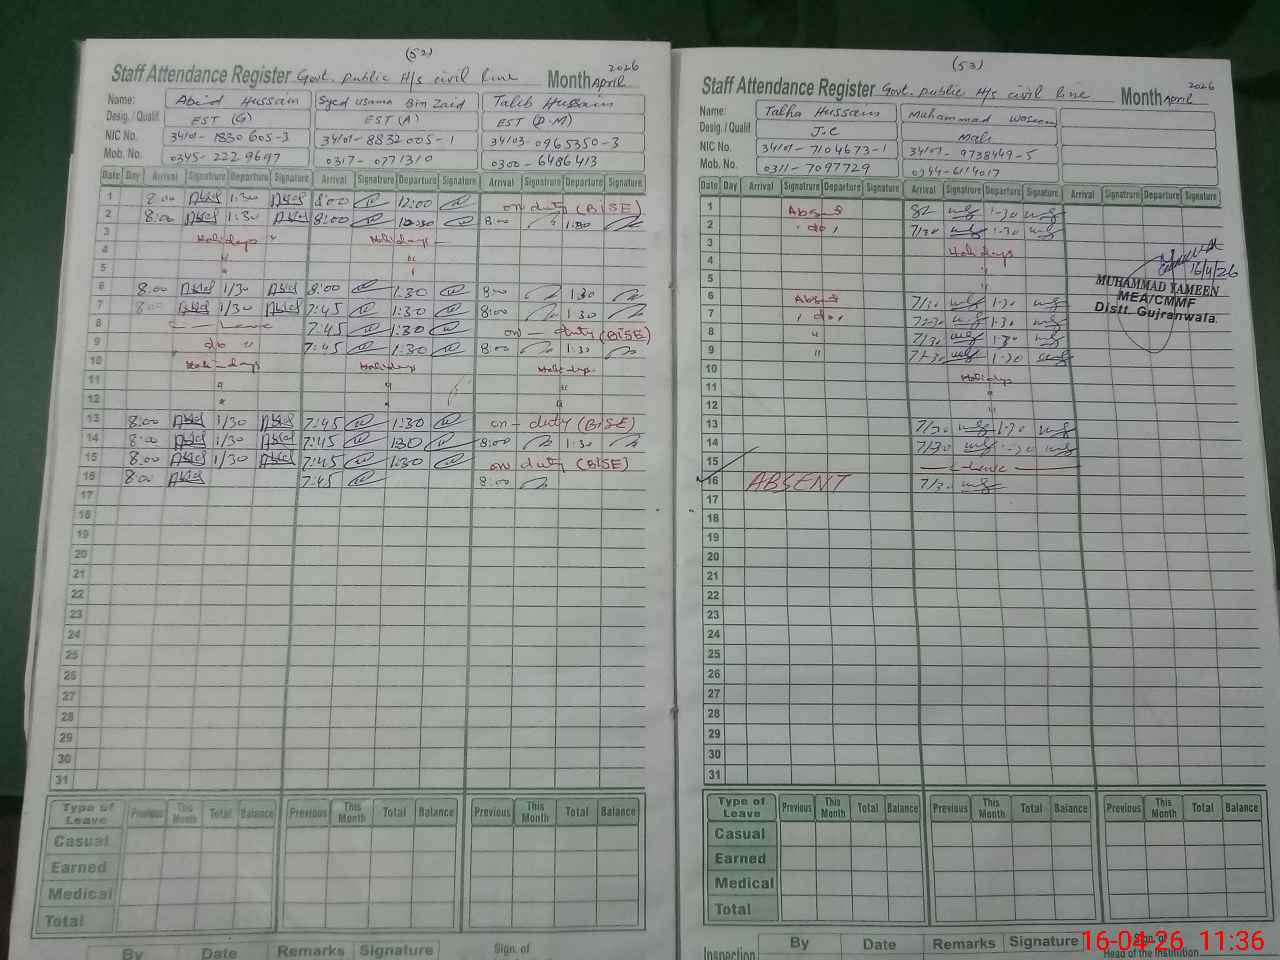 (52)
Staff Attendance Register Govt. Public H/s civil line Month April 2026
Name: Abid Hussain Syed Usama Bin Zaid Talib Hussain
Desig. / Qualif. EST (G) EST (A) EST (D.M)
NIC No. 34101-1830605-3 34101-8832005-1 34103-0965350-3
Mob. No. 0345-2229697 0317-0771310 0300-6486413
Date Day Arrival Signature Departure Signature Arrival Signature Departure Signature Arrival Signature Departure Signature
1 8:00 1:30 8:00 12:00 on duty (BISE)
2 8:00 1:30 8:00 8:00 1:30
3 Holidays " Holidays
4 " "
5 "
6 8:00 1/30 8:00 1:30 8:00 1:30
7 8:00 1/30 7:45 1:30 8:00 1:30
8 Leave 7:45 1:30 on-duty (BISE)
9 do " 7:45 1:30 8:00 1:30
10 Holi-days Holidays Holidays
11 " " "
12 " "
13 8:00 1/30 7:45 1:30 on-duty (BISE)
14 8:00 1/30 7:45 130 8:00 1:30
15 8:00 1/30 7:45 1:30 on duty (BISE)
16 8:00 7:45 8:00
17
18
19
20
21
22
23
24
25
26
27
28
29
30
31
Type of Leave Previous This Month Total Balance Previous This Month Total Balance Previous This Month Total Balance
Casual
Earned
Medical
Total
By Date Remarks Signature Sign. of
(53)
Staff Attendance Register Govt. Public H/s civil line Month April 2026
Name: Talha Hussain Muhammad Waseem
Desig. / Qualif. J.C Mali
NIC No. 34101-7104673-1 34101-9738449-5
Mob. No. 0311-7097729 0344-6114017
Date Day Arrival Signature Departure Signature Arrival Signature Departure Signature Arrival Signature Departure Signature
1 1-30
2 do 7/30 1-30
3 Holidays
4 "
5 "
6 7/30 1-30
7 do 7/30 1-30
8 " 7/30 1-30
9 " 7/30 1-30
10 Holidays
11 "
12 "
13 7/30 1-30
14 7/30 1-30
15 Leave
16 ABSENT 7/30
17
18
19
20
21
22
23
24
25
26
27
28
29
30
31
16/4/26
MUHAMMAD YAMEEN
MEA/CMMF
Distt. Gujranwala.
Type of Leave Previous This Month Total Balance Previous This Month Total Balance Previous This Month Total Balance
Casual
Earned
Medical
Total
Inspection By Date Remarks Signature Sign. of
Head of the Institution
16-04-26 11:36